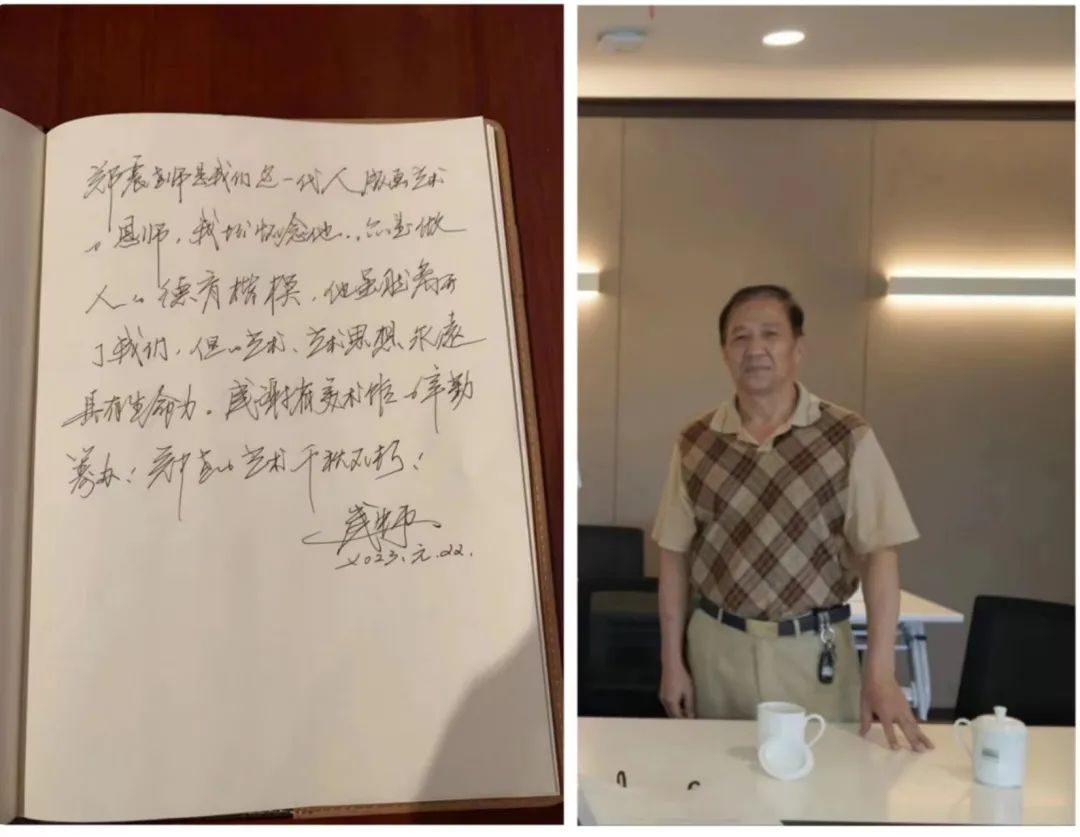 郑震老师是我们这一代人版画艺术
的恩师,我们怀念他..他是做
人的德育楷模,他虽然离开
了我们,但的艺术、艺术思想永远
具有生命力。感谢省美术馆的辛勤
筹办!郑老的艺术千秋不朽!
2023.元.22.